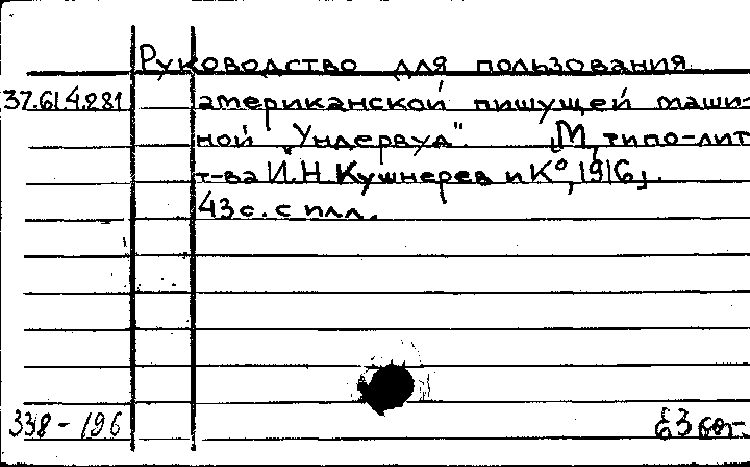 Руководство для пользования
37.614.281 американской пишущей маши-
ной „Ундервуд". [М, типо-лит
т-ва И.Н Кушнерев и К⁰, 1916].
43 с. с илл.
338-196